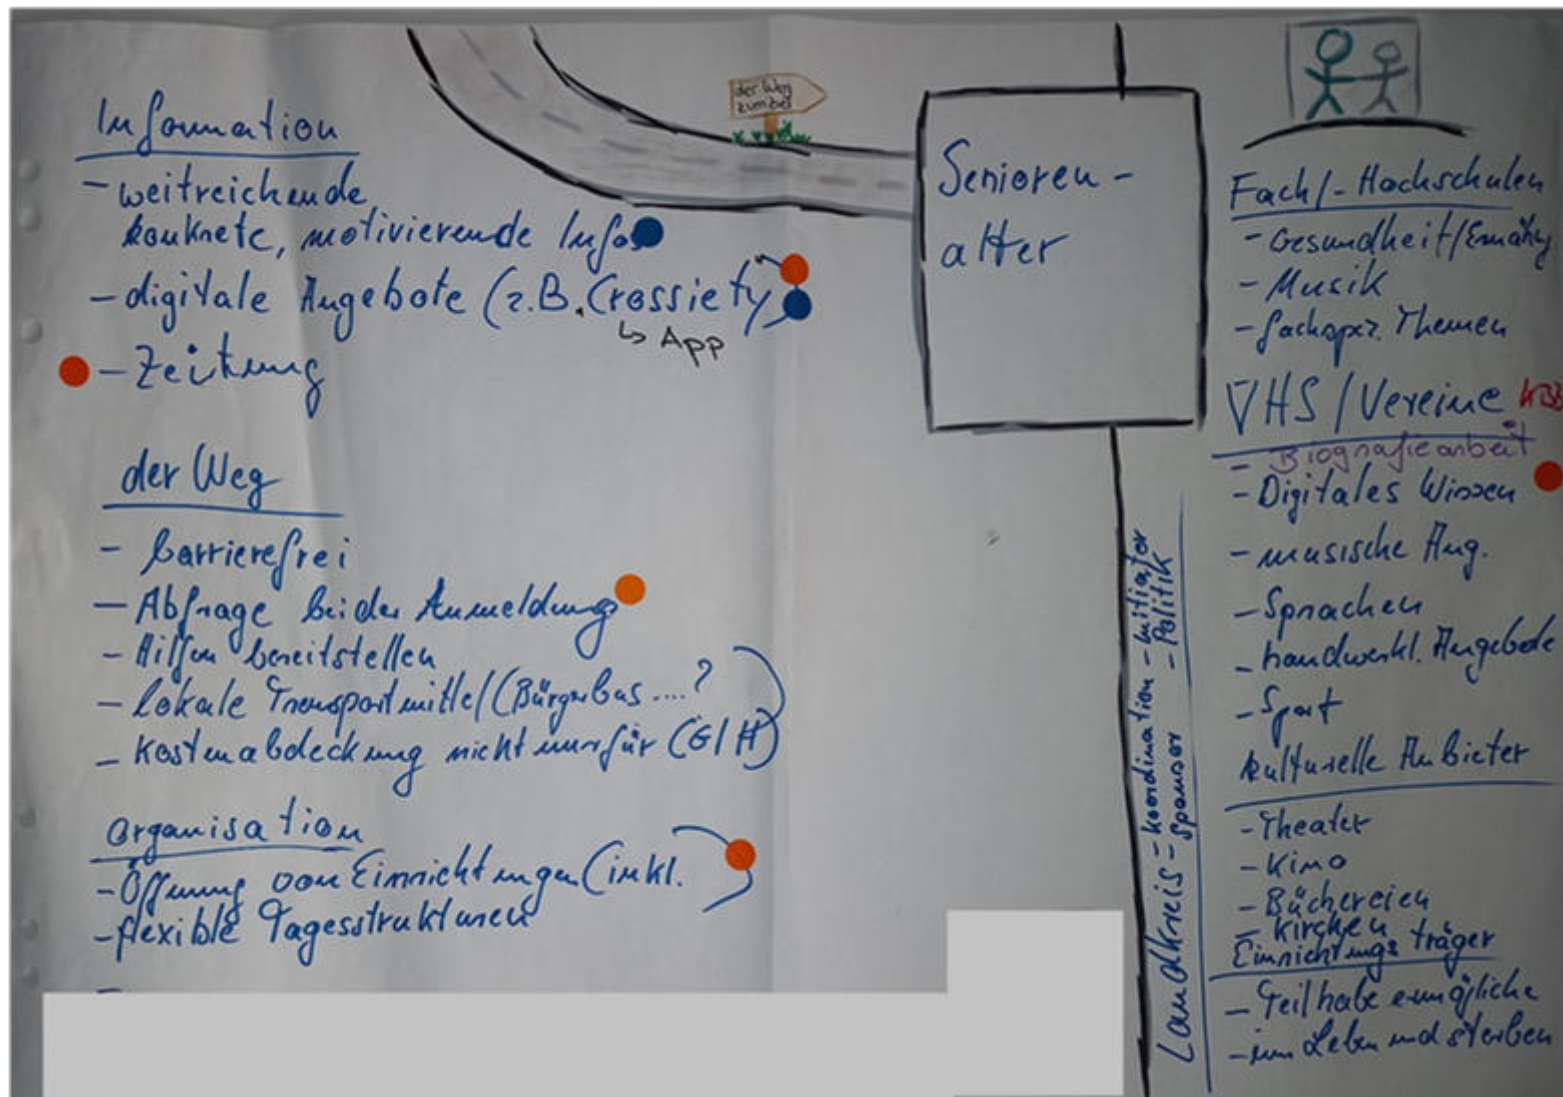 Information
- weitreichende
konkrete, motivierende Infos
- digitale Angebote (z.B. Crossiety)
↳ App
- Zeitung
der Weg
- barrierefrei
- Abfrage bei der Anmeldung
- Hilfen bereitstellen
- lokale Transportmittel (Bürgerbus ....?
- Kostenabdeckung nicht nur für (G/H)
Organisation
- Öffnung von Einrichtungen (inkl.
- flexible Tagesstrukturen
der Weg
zum
Senioren-
alter
Landkreis - Koordination - Initiator
- Sponsor - Politik
Fach/-Hochschulen
- Gesundheit/Ernährg
- Musik
- fachspez. Themen
VHS / Vereine
- Biografiearbeit
- Digitales Wissen
- musische Ang.
- Sprachen
- handwerkl. Angebote
- Sport
kulturelle Anbieter
- Theater
- Kino
- Büchereien
- Kirchen
Einrichtungsträger
- Teilhabe ermögliche
- im Leben und sterben